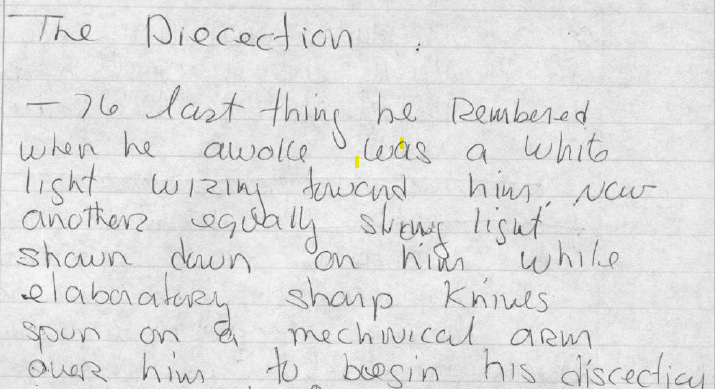 The Diecection
— The last thing he Rembered
when he awoke was a white
light wizing toward him. Now
another equally strong light
shown down on him while
elaboratory sharp Knives
spun on a mechinical arm
over him to beegin his discection